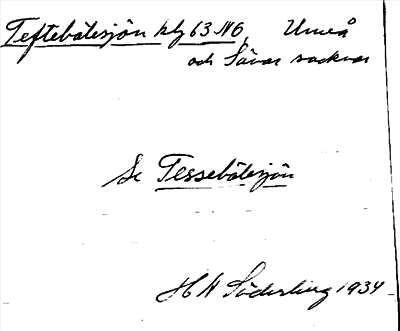 Teftebölesjön klj 63 N6, Umeå
och Sävar socknar
Se Tessebölesjön
H N Söderling 1934